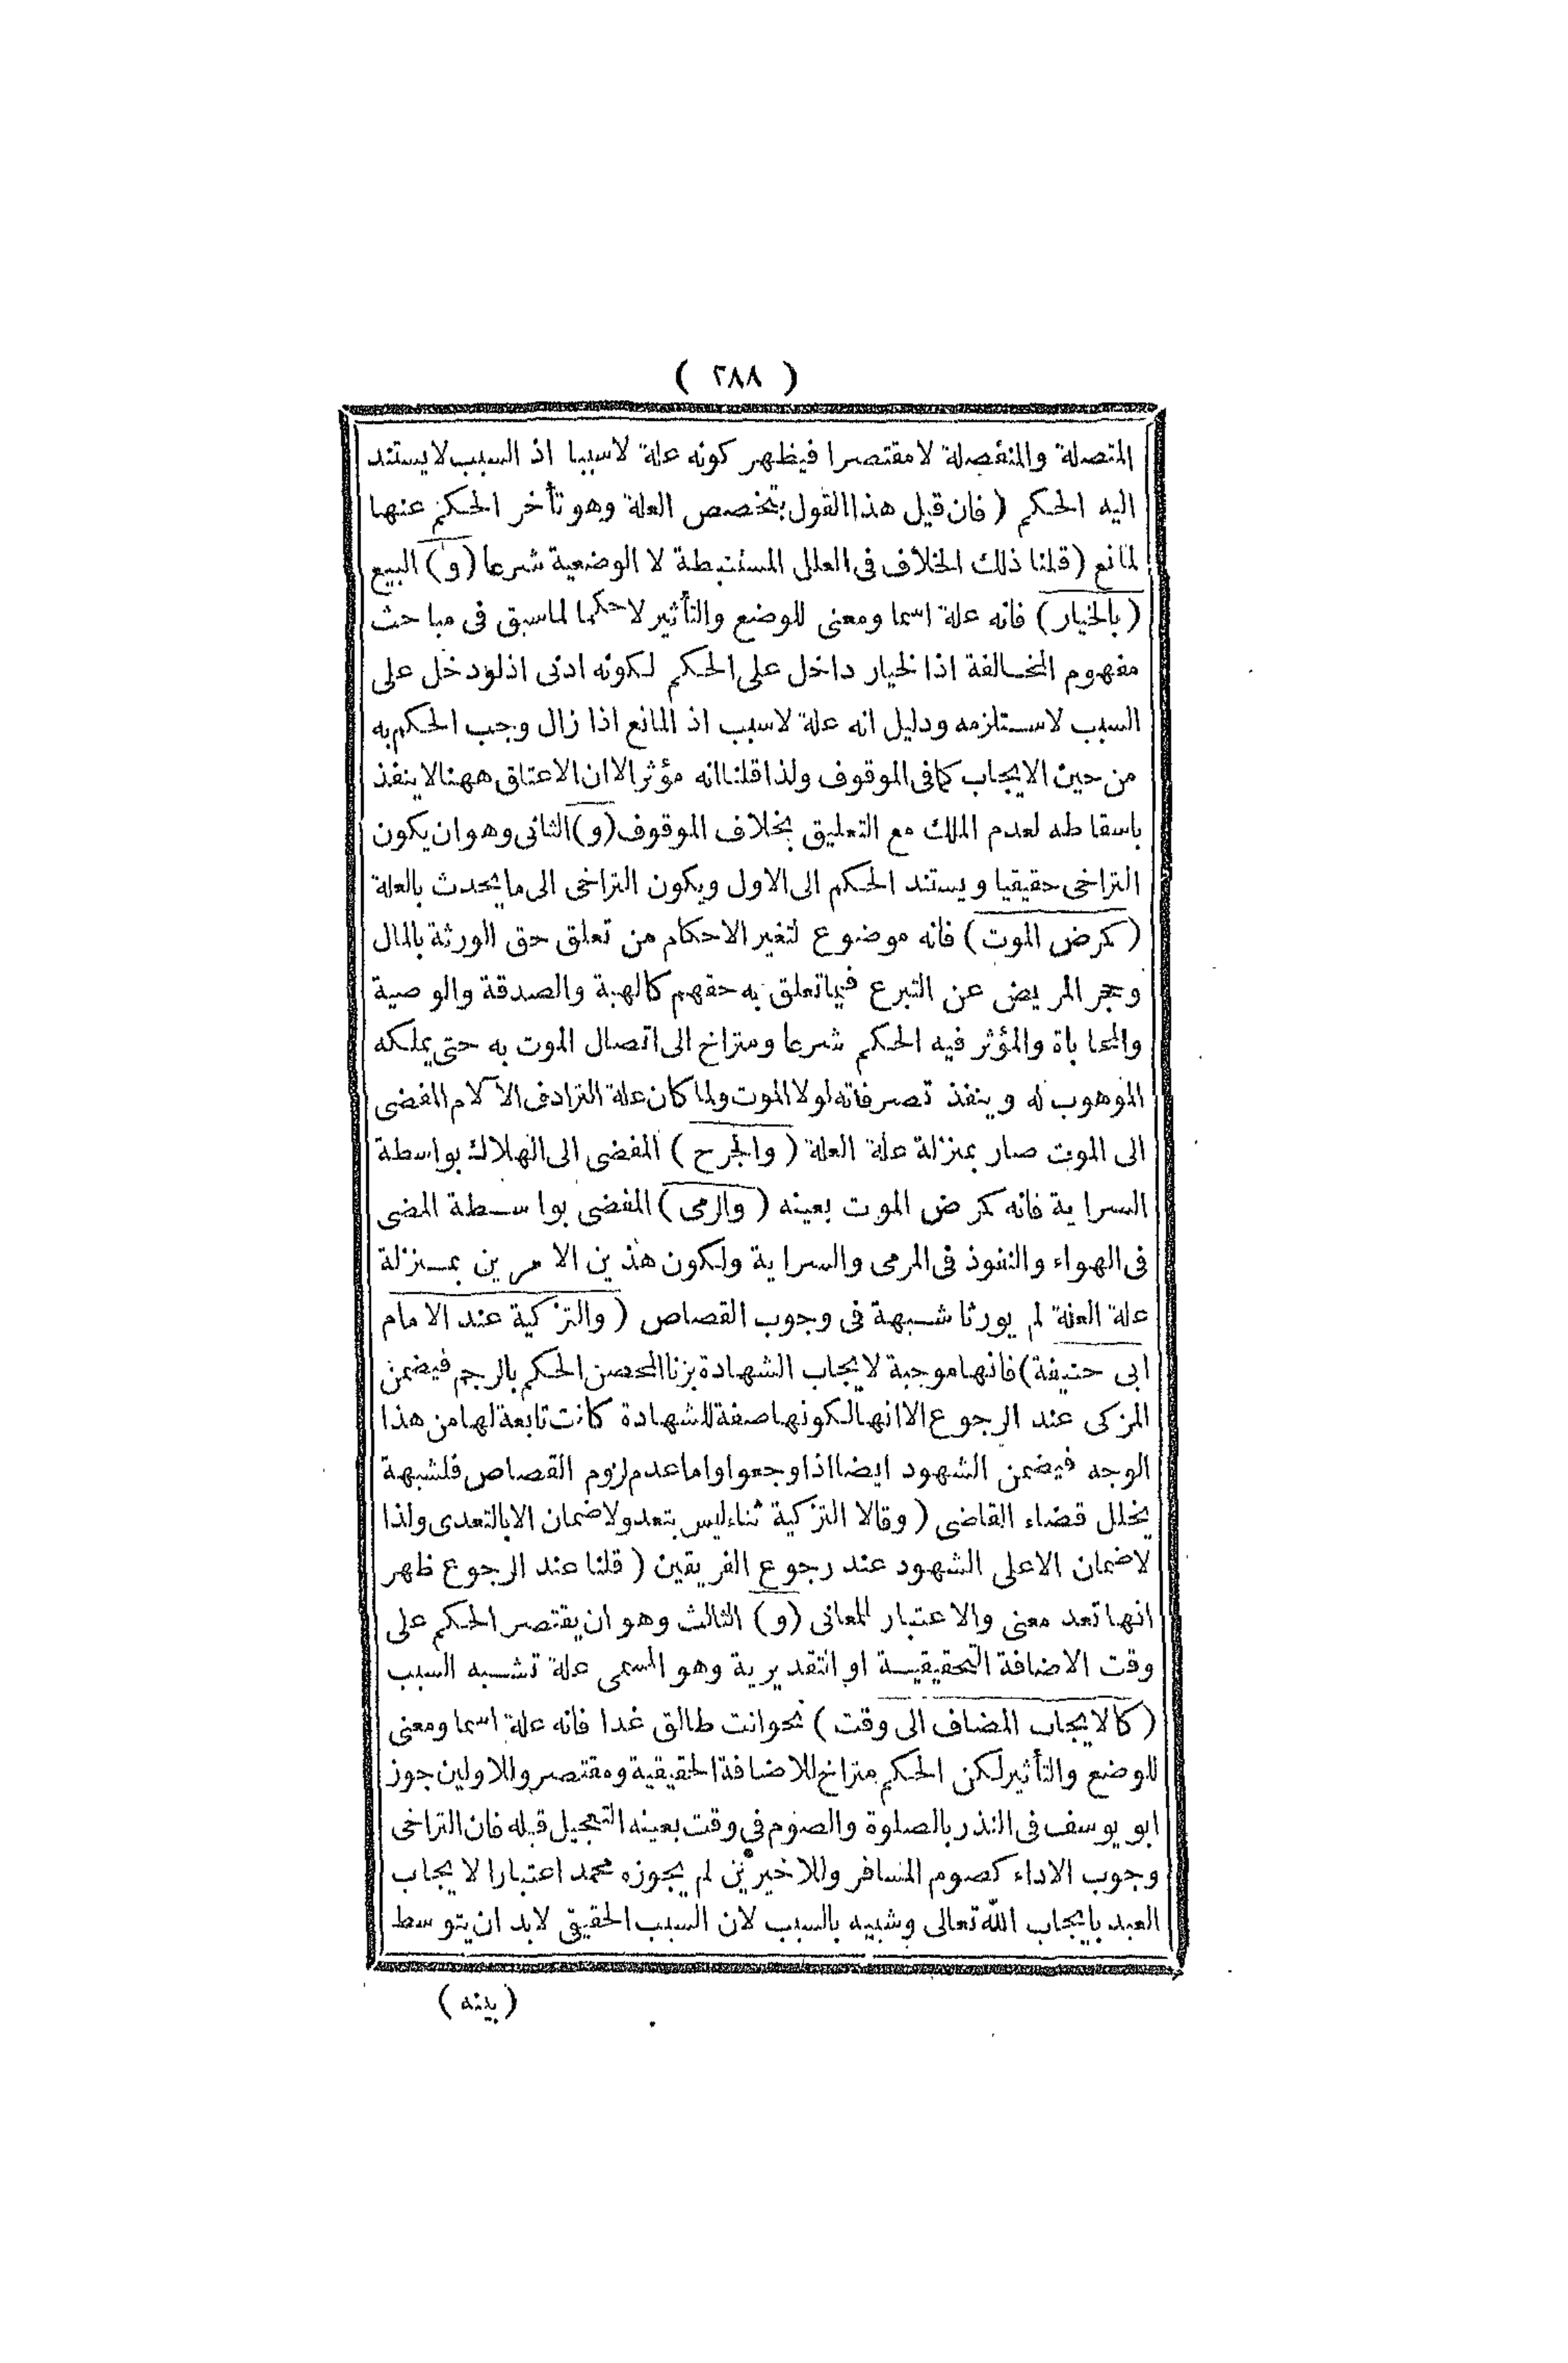 ( ٢٨٨ )
المتصلة والمنفصلة لامقتصرا فيظهر كونه علة لاسببا اذ السبب لايستند
اليه الحكم ( فان قيل هذا القول بتخصص العلة وهو تأخر الحكم عنها
لمانع ( قلنا ذلك الخلاف فى العلل المستنبطة لا الوضعية شرعا ( و ) البيع
( بالخيار ) فانه علة اسما ومعنى للوضع والتأثير لاحكما لماسبق فى مباحث
مفهوم المخالفة اذا لخيار داخل على الحكم لكونه ادنى اذلودخل على
السبب لاستلزمه ودليل انه علة لاسبب اذ المانع اذا زال وجب الحكم به
من حين الايجاب كما فى الموقوف ولذا قلنا انه مؤثر الا ان الاعتاق ههنا لاينفذ
باسقاطه لعدم الملك مع التعليق بخلاف الموقوف ( و ) الثانى وهو ان يكون
التراخى حقيقيا ويستند الحكم الى الاول ويكون التراخى الى مايحدث بالعلة
( كمرض الموت ) فانه موضوع لتغير الاحكام من تعلق حق الورثة بالمال
وحجر المريض عن التبرع فيما تعلق به حقهم كالهبة والصدقة والوصية
والمحاباة والمؤثر فيه الحكم شرعا ومتراخ الى اتصال الموت به حتى يملكه
الموهوب له وينفذ تصرفاته لولا الموت ولما كان علة الترادف الآلام المفضى
الى الموت صار بمنزلة علة العلة ( والجرح ) المفضى الى الهلاك بواسطة
السراية فانه كمرض الموت بعينه ( والرمى ) المفضى بواسطة المضى
فى الهواء والنفوذ فى المرمى والسراية ولكون هذين الامرين بمنزلة
علة العلة لم يورثا شبهة فى وجوب القصاص ( والتزكية عند الامام
ابى حنيفة ) فانها موجبة لايجاب الشهادة بزنا المحصن الحكم بالرجم فيضمن
المزكى عند الرجوع الا انها لكونها صفة للشهادة كانت تابعة لها من هذا
الوجه فيضمن الشهود ايضا اذا وجعوا واما عدم لزوم القصاص فلشبهة
يخلل قضاء القاضى ( وقالا التزكية ثناء ليس بتعد ولا ضمان الا بالتعدى ولذا
لاضمان الاعلى الشهود عند رجوع الفريقين ( قلنا عند الرجوع ظهر
انها تعد معنى والاعتبار للمعانى ( و ) الثالث وهو ان يقتصر الحكم على
وقت الاضافة التحقيقية او التقديرية وهو المسمى علة تشبه السبب
( كالايجاب المضاف الى وقت ) نحو انت طالق غدا فانه علة اسما ومعنى
للوضع والتأثير لكن الحكم متراخ للاضافة الحقيقية ومقتصر وللاولين جوز
ابو يوسف فى النذر بالصلوة والصوم فى وقت بعينه التعجيل قبله فان التراخى
وجوب الاداء كصوم المسافر وللاخيرين لم يجوزه محمد اعتبارا لايجاب
العبد بايجاب الله تعالى وشبيه بالسبب لان السبب الحقيقى لابد ان يتوسط
( بينه )